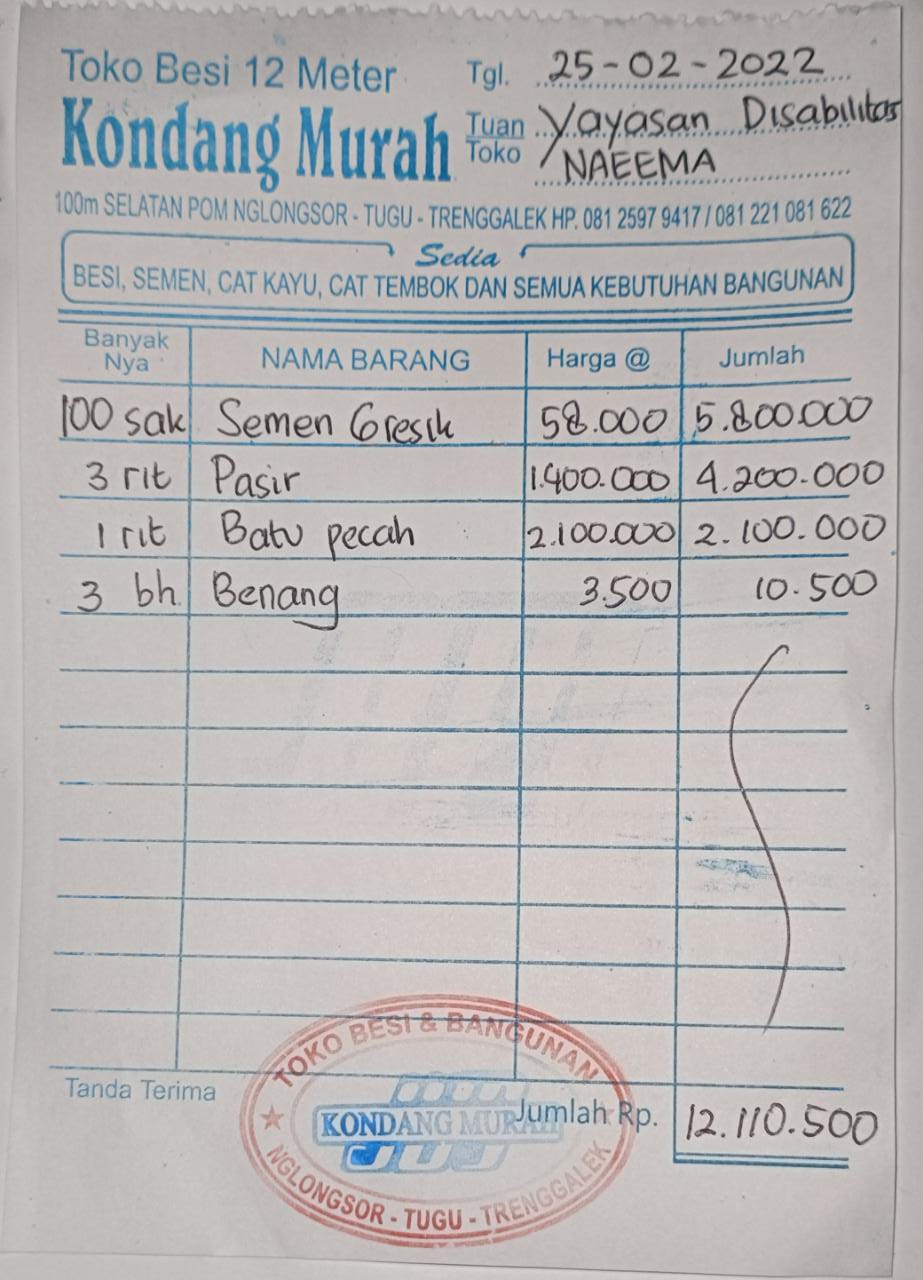 Toko Besi 12 Meter Tgl. 25-02-2022
Kondang Murah Tuan Toko Yayasan Disabilitas NAEEMA
100m SELATAN POM NGLONGSOR - TUGU - TRENGGALEK HP. 081 2597 9417 / 081 221 081 622
Sedia
BESI, SEMEN, CAT KAYU, CAT TEMBOK DAN SEMUA KEBUTUHAN BANGUNAN
Banyak Nya NAMA BARANG Harga @ Jumlah
100 sak Semen Gresik 58.000 5.800.000
3 rit Pasir 1.400.000 4.200.000
1 rit Batu pecah 2.100.000 2.100.000
3 bh Benang 3.500 10.500
Tanda Terima
Jumlah Rp. 12.110.500
TOKO BESI & BANGUNAN
KONDANG MURAH
NGLONGSOR - TUGU - TRENGGALEK